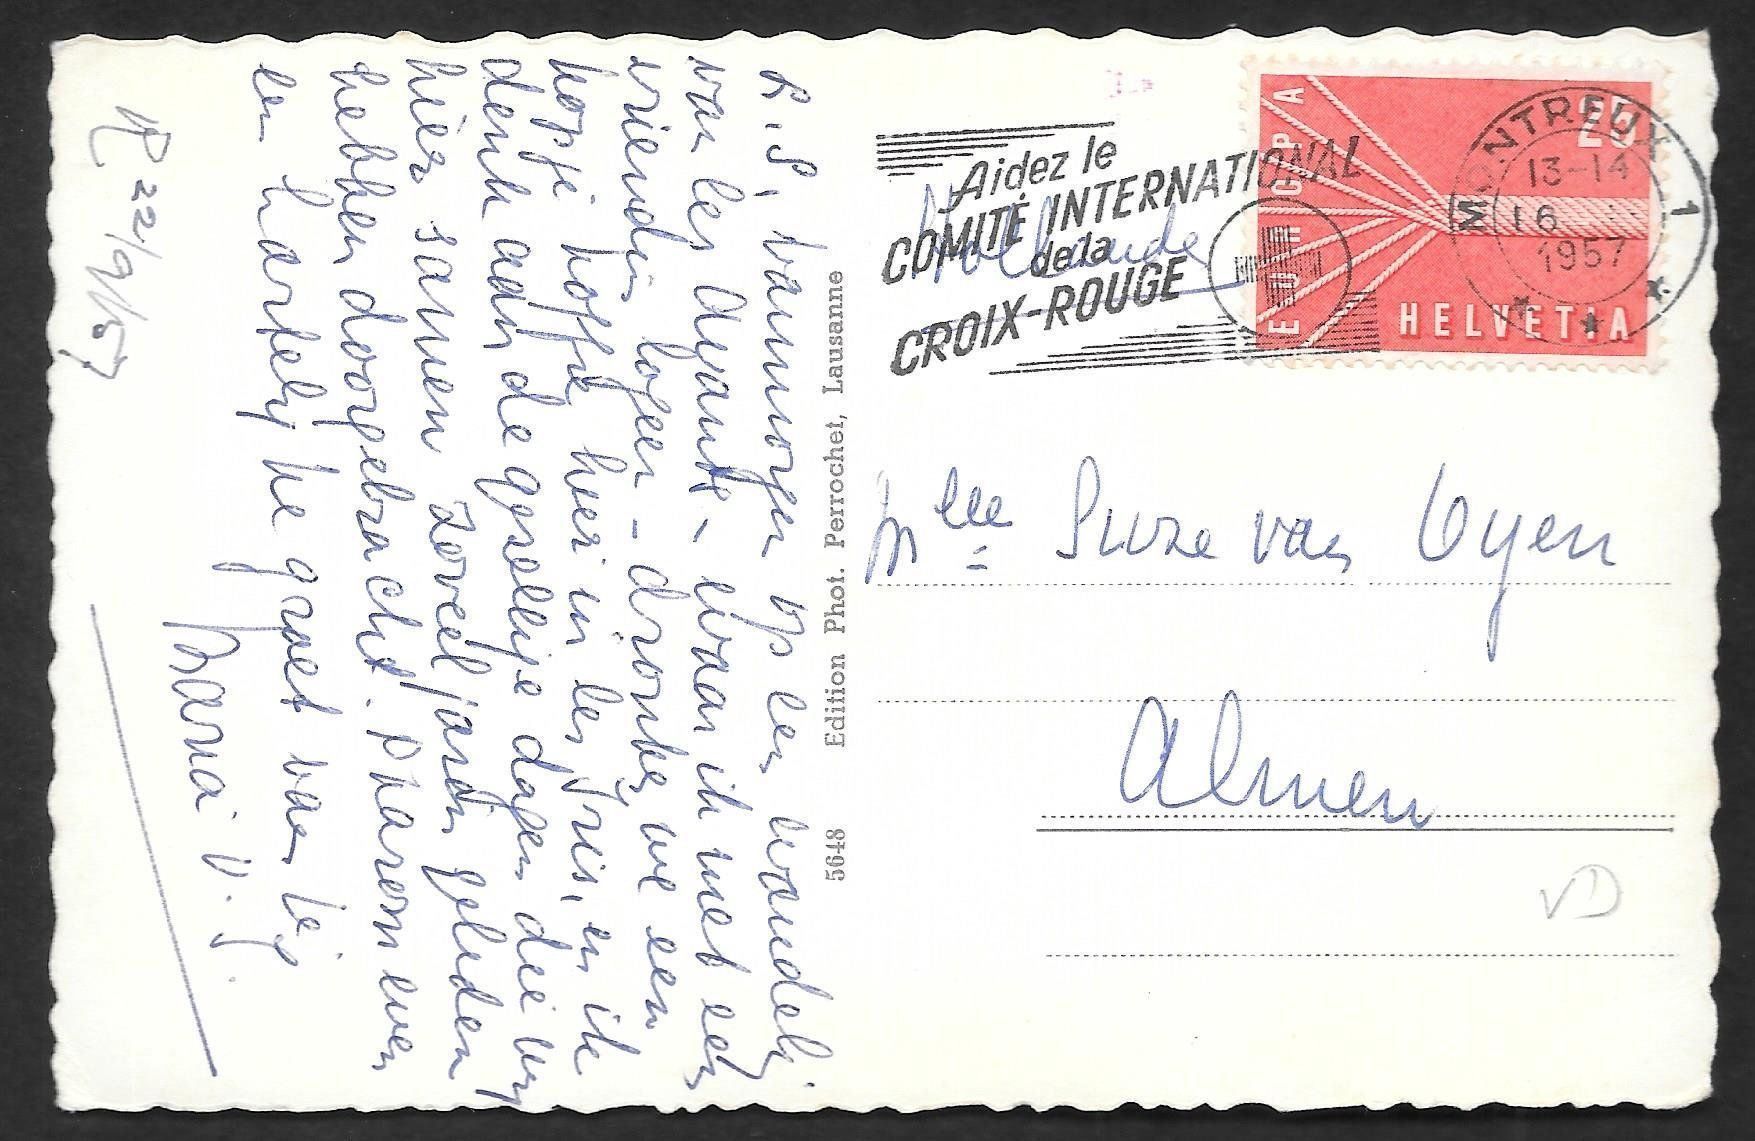 L. S, vanmorgen op een wandeling
van les Avants - waar ik met een
vriendin logeer - dronken we een
kopje koffie hier in les Iris, en ik
denk aan de gezellige dagen die wij
hier samen zoveel jaren geleden
hebben doorgebracht. Daarom even
een hartelijke groet van je
Maria V. J.
R 22/9/57
5648 Edition Phot. Perrochet, Lausanne
Aidez le
COMITÉ INTERNATIONAL
de la
CROIX-ROUGE
Hollande
EUROPA
25
HELVETIA
MONTREUX 1
13-14
16
1957
Mlle Suze van Oyen
Almen
VD